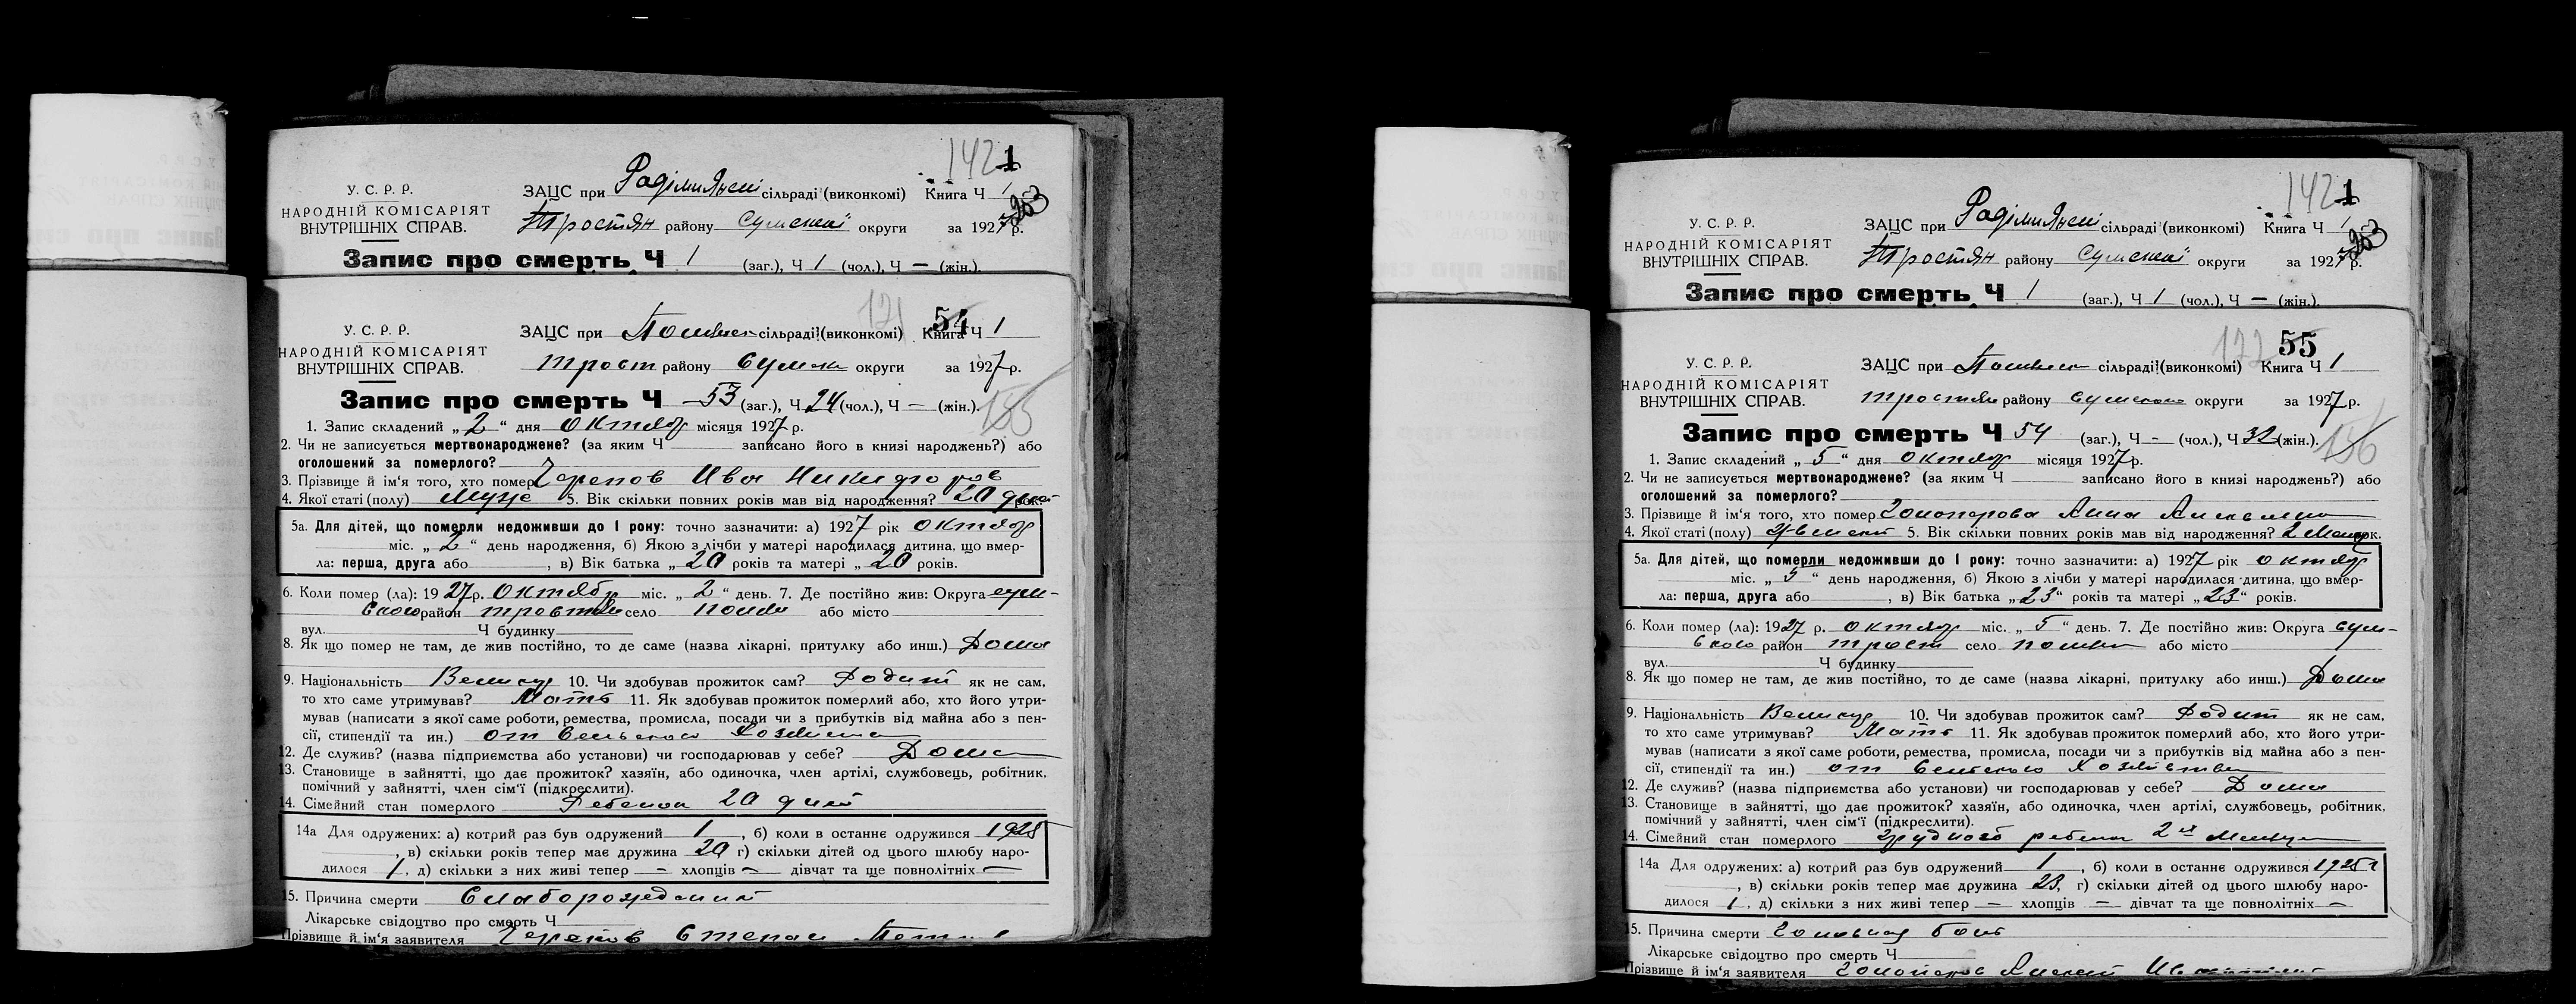 142 1
У. С. Р. Р.
НАРОДНІЙ КОМІСАРІЯТ
ВНУТРІШНІХ СПРАВ.
ЗАЦС при сільраді (виконкомі) Книга Ч 1
Тростян району Сумської округи за 1927 р.
203
Запис про смерть Ч 1 (заг.), Ч 1 (чол.), Ч — (жін.).
121 54
У. С. Р. Р.
НАРОДНІЙ КОМІСАРІЯТ
ВНУТРІШНІХ СПРАВ.
ЗАЦС при сільраді (виконкомі) Книга Ч 1
Трост району Сумск округи за 1927 р.
Запис про смерть Ч 53 (заг.), Ч 24 (чол.), Ч — (жін.).
155
1. Запис складений „ 2 “ дня Октябр місяця 1927 р.
2. Чи не записується мертвонароджене? (за яким Ч записано його в книзі народжень?) або
оголошений за померлого?
3. Прізвище й ім'я того, хто помер Иван Никифоров
4. Якої статі (полу) Муже 5. Вік скільки повних років мав від народження? 20 дней рок.
5а. Для дітей, що померли недоживши до 1 року: точно зазначити: а) 1927 рік октябр
міс. „ 2 “ день народження, б) Якою з лічби у матері народилася дитина, що вмер-
ла: перша, друга або , в) Вік батька „ 20 років та матері „ 20 років.
6. Коли помер (ла): 1927 р. Октябр міс. „ 2 “ день. 7. Де постійно жив: Округа сум-
ского район тростян село або місто
вул. Ч будинку
8. Як що помер не там, де жив постійно, то де саме (назва лікарні, притулку або инш.) Дома
9. Національність Великор 10. Чи здобував прожиток сам? Родит як не сам,
то хто саме утримував? Мать 11. Як здобував прожиток померлий або, хто його утри-
мував (написати з якої саме роботи, ремества, промисла, посади чи з прибутків від майна або з пен-
сії, стипендії та ин.) от Сельского Хозяйства
12. Де служив? (назва підприємства або установи) чи господарював у себе? Дома
13. Становище в зайнятті, що дає прожиток? хазяїн, або одиночка, член артілі, службовець, робітник,
помічний у зайнятті, член сім'ї (підкреслити).
14. Сімейний стан померлого Ребенок 20 дней
14а Для одружених: а) котрий раз був одружений 1 , б) коли в останнє одружився
, в) скільки років тепер має дружина 20 г) скільки дітей од цього шлюбу наро-
дилося 1 , д) скільки з них живі тепер — хлопців — дівчат та ще повнолітніх —
15. Причина смерти Слаборожденый
Лікарське свідоцтво про смерть Ч
Прізвище й ім'я заявителя Степан
142 1
У. С. Р. Р.
НАРОДНІЙ КОМІСАРІЯТ
ВНУТРІШНІХ СПРАВ.
ЗАЦС при сільраді (виконкомі) Книга Ч 1
Тростян району Сумської округи за 1927 р.
203
Запис про смерть Ч 1 (заг.), Ч 1 (чол.), Ч — (жін.).
122 55
У. С. Р. Р.
НАРОДНІЙ КОМІСАРІЯТ
ВНУТРІШНІХ СПРАВ.
ЗАЦС при сільраді (виконкомі) Книга Ч 1
Тростян району Сумского округи за 1927 р.
Запис про смерть Ч 54 (заг.), Ч — (чол.), Ч 32 (жін.).
156
1. Запис складений „ 5 “ дня Октябр місяця 1927 р.
2. Чи не записується мертвонароджене? (за яким Ч записано його в книзі народжень?) або
оголошений за померлого?
3. Прізвище й ім'я того, хто помер Анна
4. Якої статі (полу) 5. Вік скільки повних років мав від народження? 2 рок.
5а. Для дітей, що померли недоживши до 1 року: точно зазначити: а) 1927 рік октябр
міс. „ 5 “ день народження, б) Якою з лічби у матері народилася дитина, що вмер-
ла: перша, друга або , в) Вік батька „ 23 “ років та матері „ 23 “ років.
6. Коли помер (ла): 1927 р. октябр міс. „ 5 “ день. 7. Де постійно жив: Округа сум-
ского район трост село або місто
вул. Ч будинку
8. Як що помер не там, де жив постійно, то де саме (назва лікарні, притулку або инш.) Дома
9. Національність Великор 10. Чи здобував прожиток сам? Родит як не сам,
то хто саме утримував? Мать 11. Як здобував прожиток померлий або, хто його утри-
мував (написати з якої саме роботи, ремества, промисла, посади чи з прибутків від майна або з пен-
сії, стипендії та ин.) от Сельского Хозяйства
12. Де служив? (назва підприємства або установи) чи господарював у себе? Дома
13. Становище в зайнятті, що дає прожиток? хазяїн, або одиночка, член артілі, службовець, робітник,
помічний у зайнятті, член сім'ї (підкреслити).
14. Сімейний стан померлого 2 х
14а Для одружених: а) котрий раз був одружений 1 , б) коли в останнє одружився
, в) скільки років тепер має дружина 23, г) скільки дітей од цього шлюбу наро-
дилося 1 , д) скільки з них живі тепер — хлопців — дівчат та ще повнолітніх —
15. Причина смерти головная боль
Лікарське свідоцтво про смерть Ч
Прізвище й ім'я заявителя